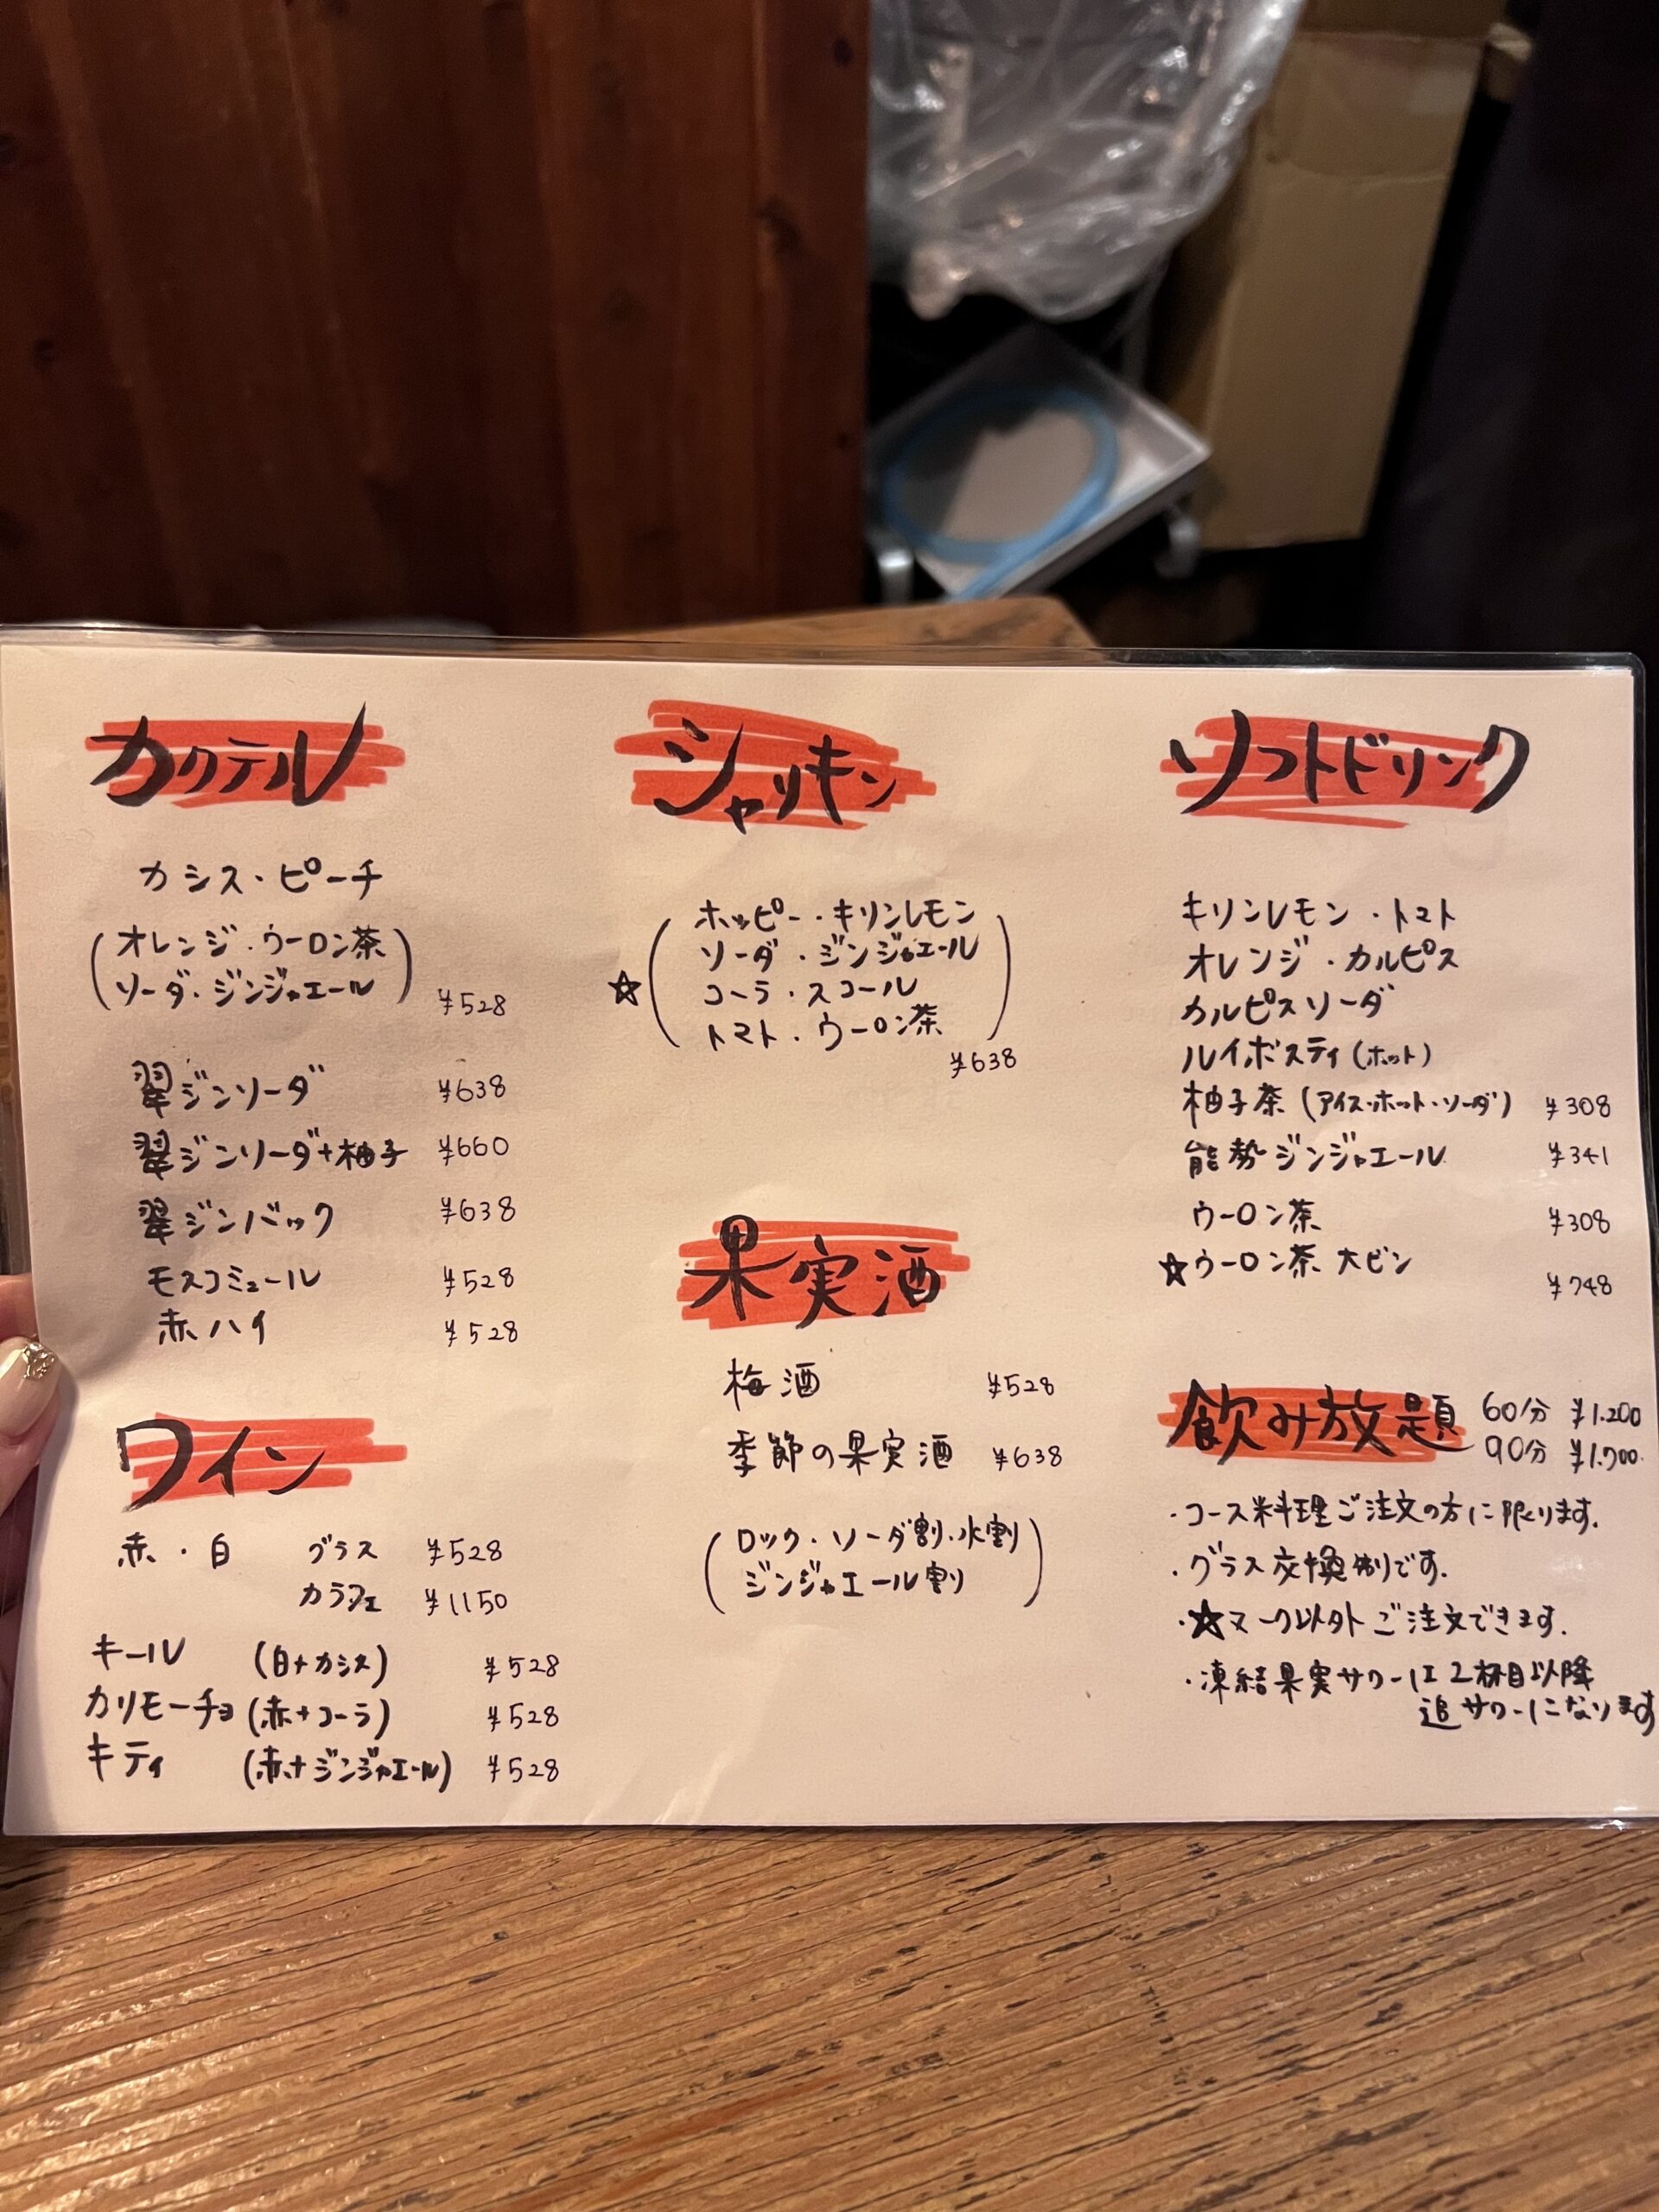 カクテル
カシス・ピーチ
(オレンジ・ウーロン茶
ソーダ・ジンジャエール) ¥528
翠ジンソーダ ¥638
翠ジンソーダ+柚子 ¥660
翠ジンバック ¥638
モスコミュール ¥528
赤ハイ ¥528
ワイン
赤・白 グラス ¥528
カラフェ ¥1150
キール (白+カシス) ¥528
カリモーチョ (赤+コーラ) ¥528
キティ (赤+ジンジャエール) ¥528
シャリキン
☆(ホッピー・キリンレモン
ソーダ・ジンジャエール
コーラ・スコール
トマト・ウーロン茶)
¥638
果実酒
梅酒 ¥528
季節の果実酒 ¥638
(ロック・ソーダ割・水割
ジンジャエール割)
ソフトドリンク
キリンレモン・トマト
オレンジ・カルピス
カルピスソーダ
ルイボスティ(ホット)
柚子茶(アイス・ホット・ソーダ) ¥308
能勢ジンジャエール ¥341
ウーロン茶 ¥308
☆ウーロン茶 大ビン ¥748
飲み放題 60分 ¥1.200
90分 ¥1.700
・コース料理ご注文の方に限ります。
・グラス交換制です。
・☆マーク以外ご注文できます。
・凍結果実サワーは2杯目以降
追サワーになります